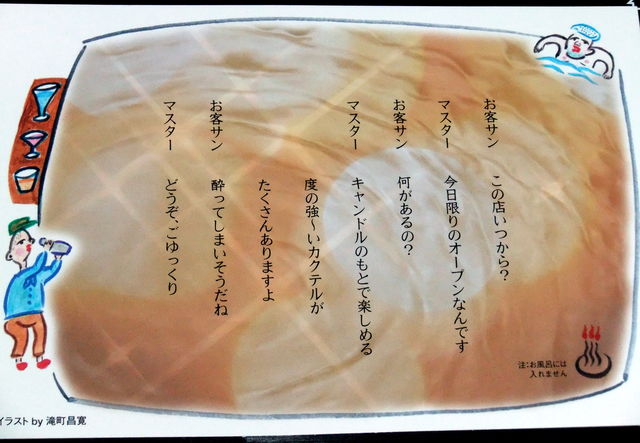 お客サン この店いつから?
マスター 今日限りのオープンなんです
お客サン 何があるの?
マスター キャンドルのもとで楽しめる
度の強〜いカクテルが
たくさんありますよ
お客サン 酔ってしまいそうだね
マスター どうぞ、ごゆっくり
注:お風呂には
入れません
イラスト by 滝町昌寛